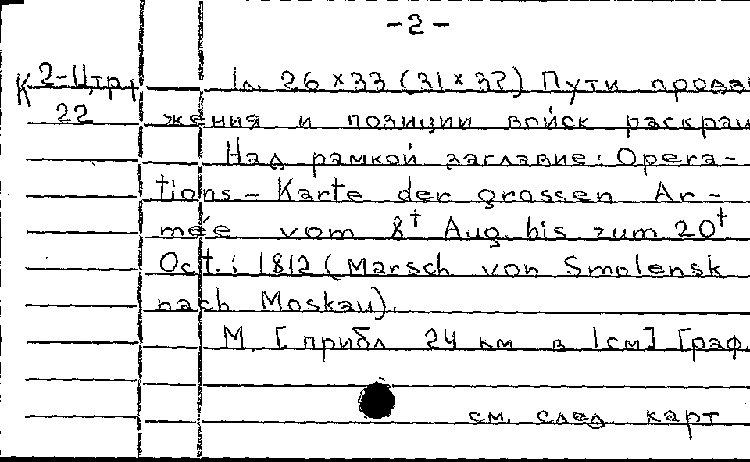 -2-
К 2-Цтр,1 1л. 26×33 (31×37) Пути продви
22 жения и позиции войск раскраш
Над рамкой заглавие: Opera-
tions-Karte der grossen Ar-
mée vom 8t Aug. bis zum 20t
Oct.: 1812 (Marsch von Smolensk
nach Moskau).
М. [прибл 24 км в 1см] [граф.
см. след карт